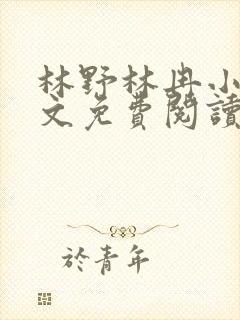 林野林冉小
文免費閱讀
於青年